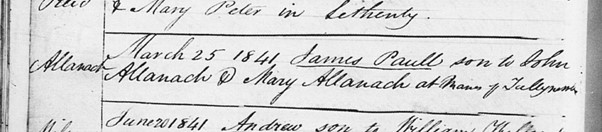 & Mary Peter in Lethenty.
Allanach March 25 1841 James Paull son to John
Allanach & Mary Allanach at Manes of Tullynessle
June 20 1841 Andrew son to William